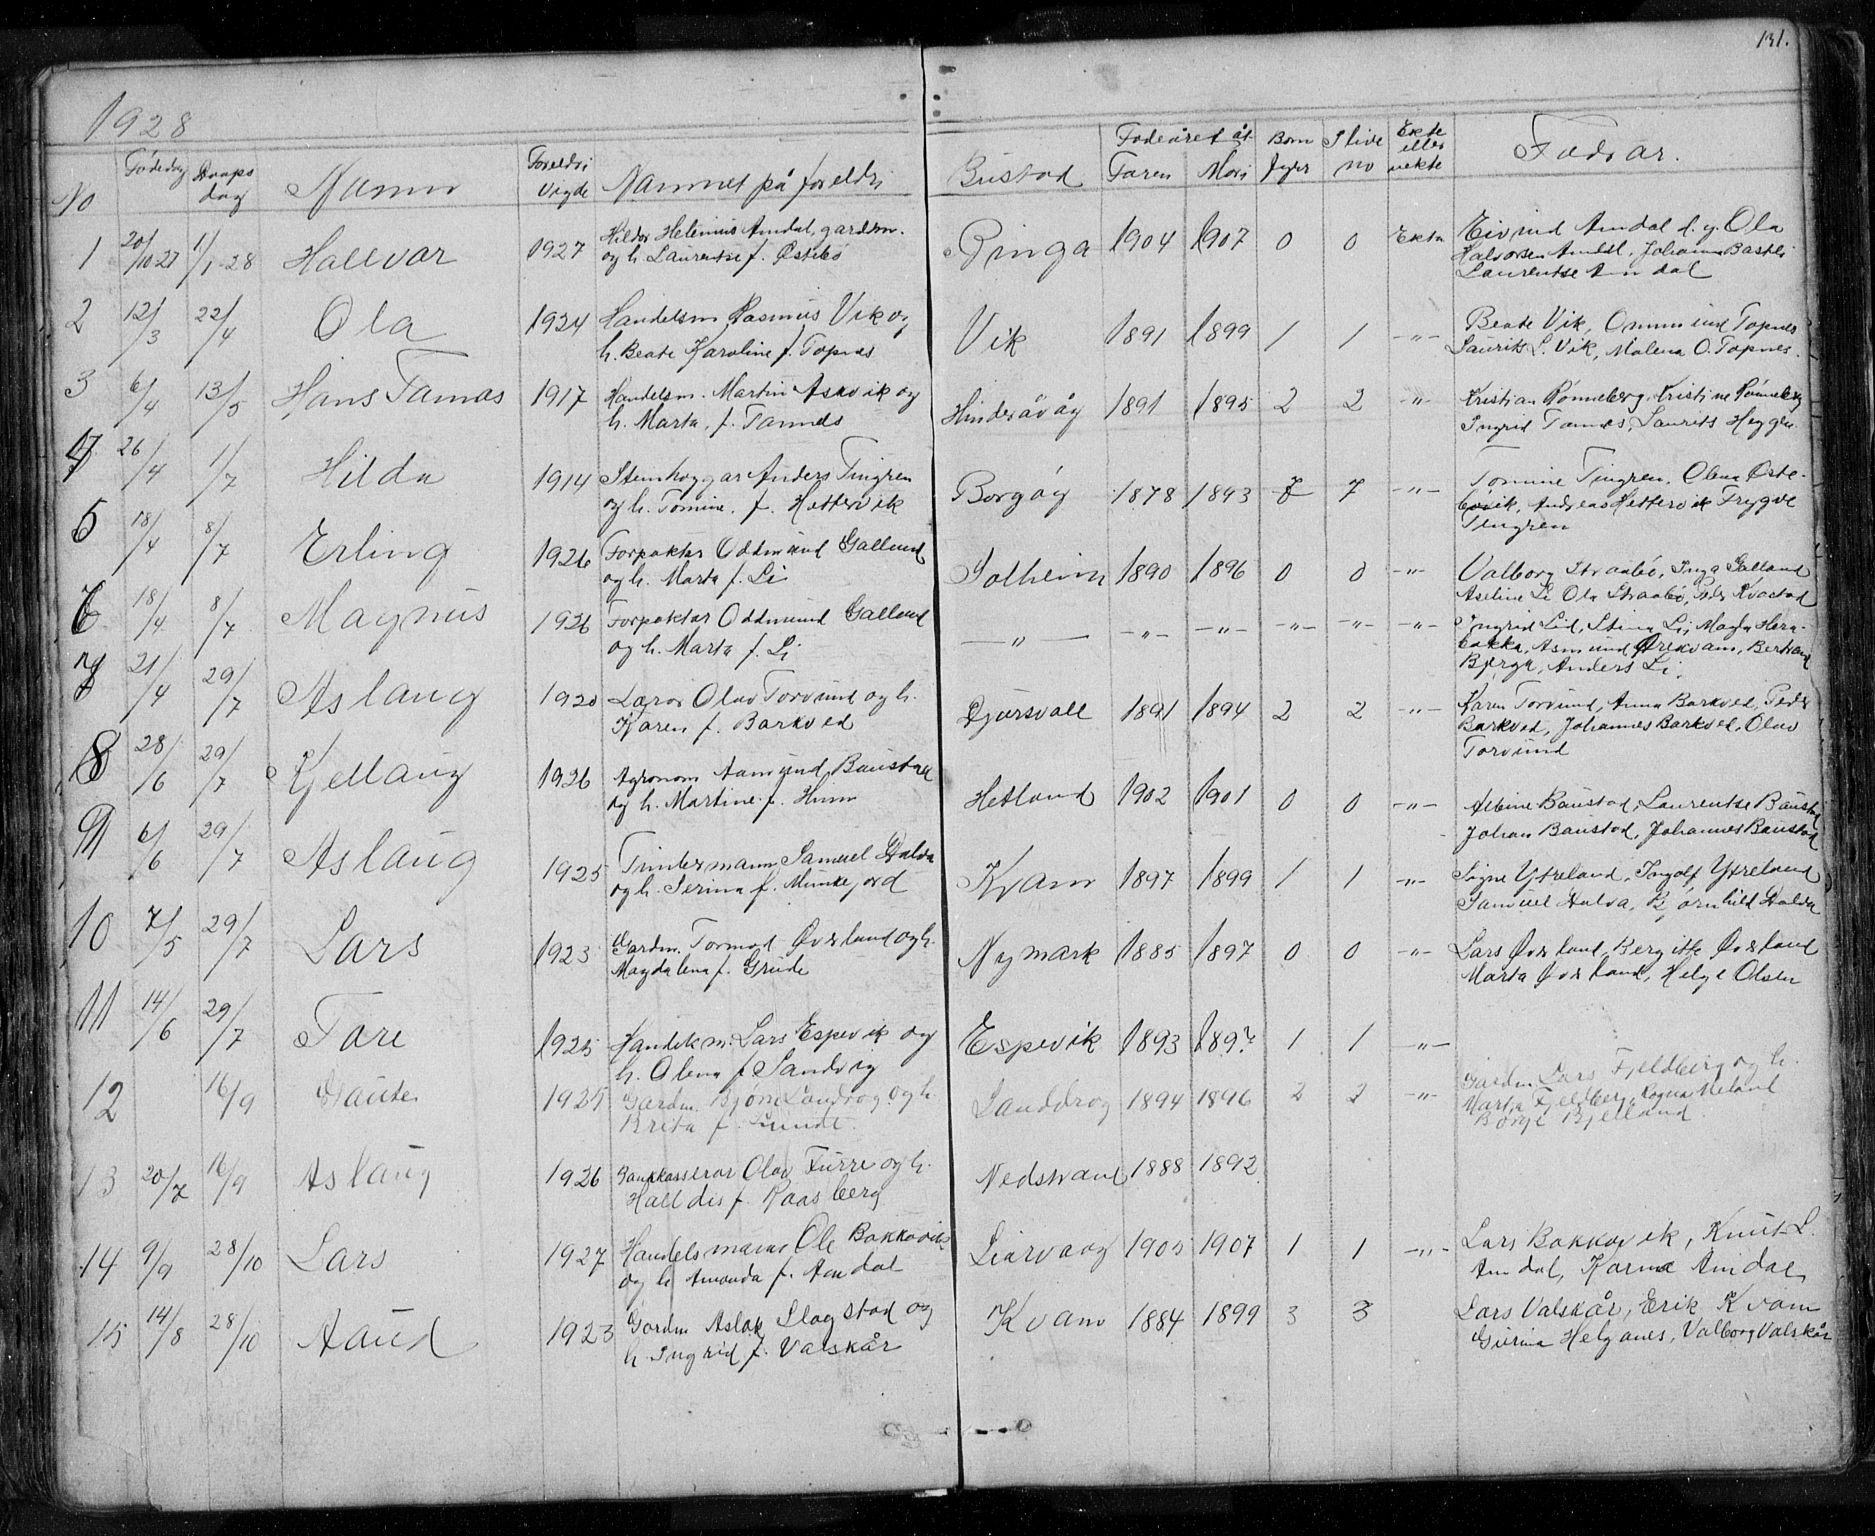 131.
1928
No Fødedag Daaps dag Namn Foreldri Vigde Namnet på foreldri Bustad Fødeåret åt Faren Mori Born fyrr I live no Ekte eller uekte Fadrar.
1 20/10-27 1/1-28 Hallvor 1927 Helenius Amdal, gardbr. og h. Laurentse f. Østebø Ringa 1904 1907 0 0 Ekte Eivind Amdal d.y. Ola
Halvorsen Amdal, Johanna
Laurentse Amdal
2 12/3 22/4 Ola 1924 Handelsm Rasmus Vik og
h. Beate Karoline f. Topnes Vik 1891 1899 1 1 -"- Beate Vik, Ommund Topnes
Laurits L. Vik, Malena O. Topnes.
3 6/4 13/5 Hans Tamas 1917 Handelsm. Martin Askvik og
h. Marta, f. Tamnes Hinderåvåg 1891 1895 2 2 -"- Kristian Rønneberg, Kristine Rønneberg
Ingrid Laurits
4 26/4 1/7 Hilda 1914 Steinhoggar Anders Tingren
og h. Tomine, f. Hettervik Borgøy 1878 1893 7 -"- Tomine Tingren, Olena Øste-
bøvik, Andreas Hettervik Trygve
Tingren
5 18/4 8/7 Erling 1926 Forpaktar Oddmund Galland
og h. Marta f. Li Solheim 1890 1896 0 0 -"- Valborg Straabø, Inga Galland
Aseline Li Ola Straabø, Kvastad
6 18/4 8/7 Magnus 1926 Forpaktar Oddmund Galland
og h. Marta f. Li -"- -"- -"- -"- -"- -"- Ingrid Lid, Stina Li, Magla Hera-
bakka, Asmund Ørekvam, Bertrand
Bjerga, Anders Li.
7 21/4 29/7 Aslaug 1920 Lærar Olav Torvund og h.
Karen f. Barkved Djursvoll 1891 1894 2 2 -"- Karen Torvund, Anna Barkved, Peder
Barkved, Johannes Barkved, Olav
Torvund
8 28/6 29/7 Kjellaug 1926 Agronom Aamund Baustad
og h. Martine f. Hetland 1902 1901 0 0 -"- Albine Baustad, Laurentse Baustad
Johan Baustad, Johannes Baustad
9 6/6 29/7 Aslaug 1925 Timbermann Samuel Dalva
og h. Serina f. Munkejord Kvam 1897 1899 1 1 -"- Signe Ytreland, Ingolf Ytreland
Samuel Dalva, Bjørnhild Dalva
10 7/5 29/7 Lars 1923 Gardm. Tormod Øverland og h.
Magdalena f. Grude Nymark 1885 1897 0 0 -"- Lars Øverland, Bergitte Øverland
Marta Øverland, Helge Olsen
11 14/6 29/7 Tore 1925 Handelsm. Lars Espevik og
h. Olena f. Sandvig Espevik 1893 1897 1 1 -"-
12 16/9 Gaute 1925 Gardm. Bjørn Landrog og h.
Brita f. Sunde. Landdrog 1894 1896 2 2 -"- Gardm Lars Fjeldberg og h.
Marta Fjeldberg, Ragna Meland
Børge Bjelland.
13 20/7 16/9 Aslaug 1926 Bankkasserar Olav Furre og h.
Halldis f. Raasberg Nedstrand 1888 1892
14 9/9 28/10 Lars 1927 Handelsmann Ole Bakkevik
og h. Amanda f. Amdal Liarvaag 1905 1907 1 1 -"- Lars Bakkevik, Knut L.
Amdal, Karina Amdal,
15 14/8 28/10 Aaud 1923 Gardm Aslak Slogstad og
h. Ingrid f. Valskår Kvam 1884 1899 3 3 Lars Valskår, Erik Kvam
Gurina Helganes, Valborg Valskår